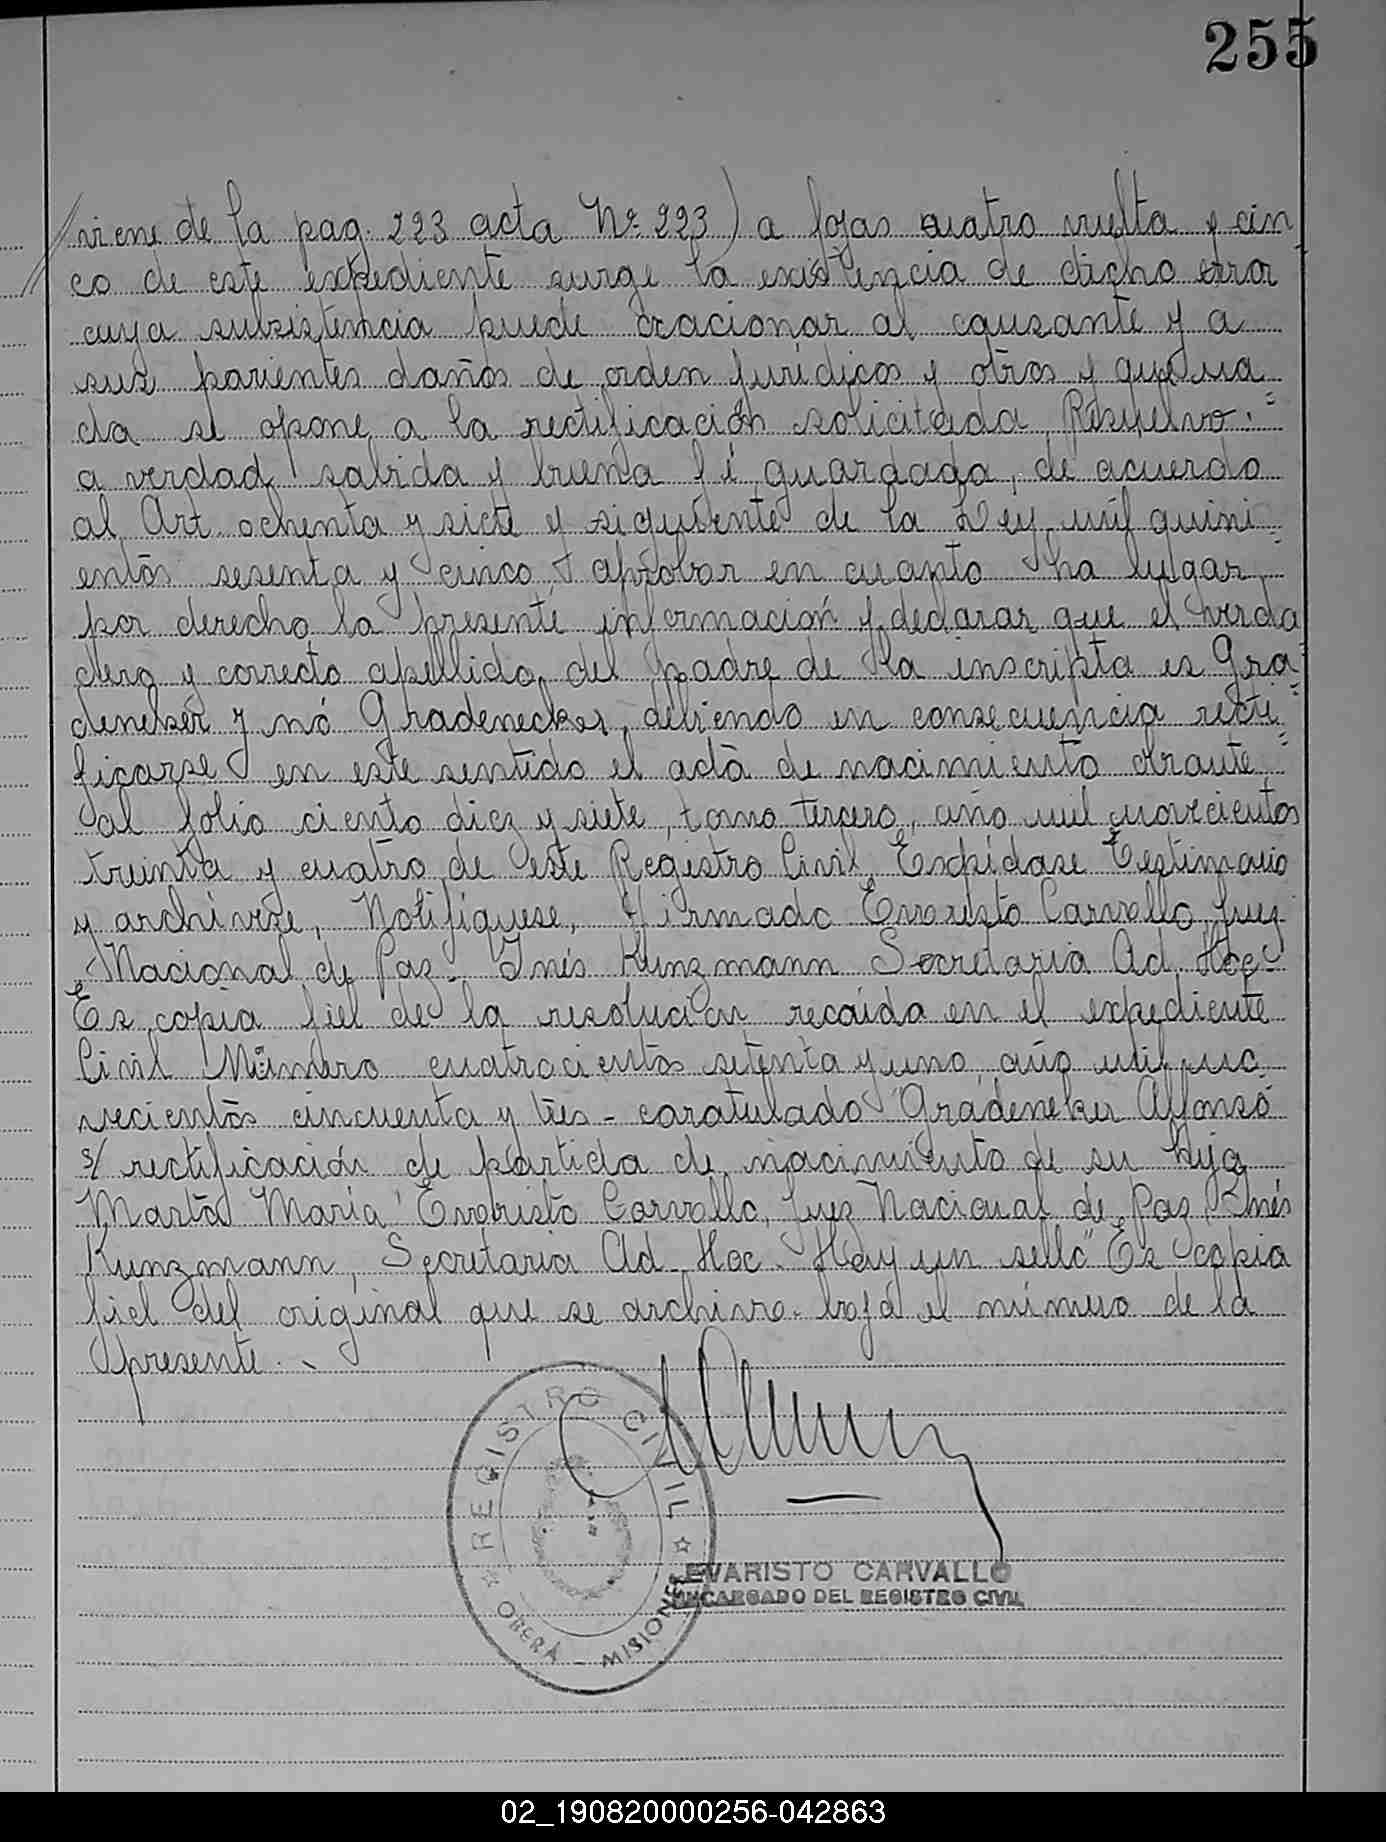 255
viene de la pag. 223 acta Nº 223) a fojas cuatro vuelta y cin
co de este expediente surge la existencia de dicho error
cuya subsistencia puede ocacionar al causante y a
sus parientes daños de orden jurídicos y otros y que na
da se opone a la rectificación solicitada, Resuelvo:
a verdad sabida y buena fé guardada, de acuerdo
al Art. ochenta y siete y siguiente de la Ley mil quini
entos sesenta y cinco aprobar en cuanto ha lugar
por derecho la presente información y declarar que el verda
dero y correcto apellido del padre de la inscripta es Gra
deneker y nó Gradenecker, debiendo en consecuencia recti
ficarse en este sentido el acta de nacimiento obrante
al folio ciento diez y siete, tomo tercero, año mil novecientos
treinta y cuatro de este Registro Civil, Expídase Testimonio
y archivese, Notifiquese, Firmado Evaristo Carvallo, Juez
Nacional de Paz - Inés Kunzmann Secretaria Ad. Hoc-
Es copia fiel de la resolución recaída en el expediente
Civil Número cuatrocientos setenta y uno, año mil no
vecientos cincuenta y tres - caratulado "Gradeneker Alfonso
s/ rectificación de partida de nacimiento de su hija
Marta María" Evaristo Carvallo, Juez Nacional de Paz, Inés
Kunzmann, Secretaria Ad Hoc. Hay un sello" Es copia
fiel del original que se archiva bajo el número de la
presente.
REGISTRO CIVIL
OBERÁ - MISIONES
EVARISTO CARVALLO
ENCARGADO DEL REGISTRO CIVIL
02_190820000256-042863